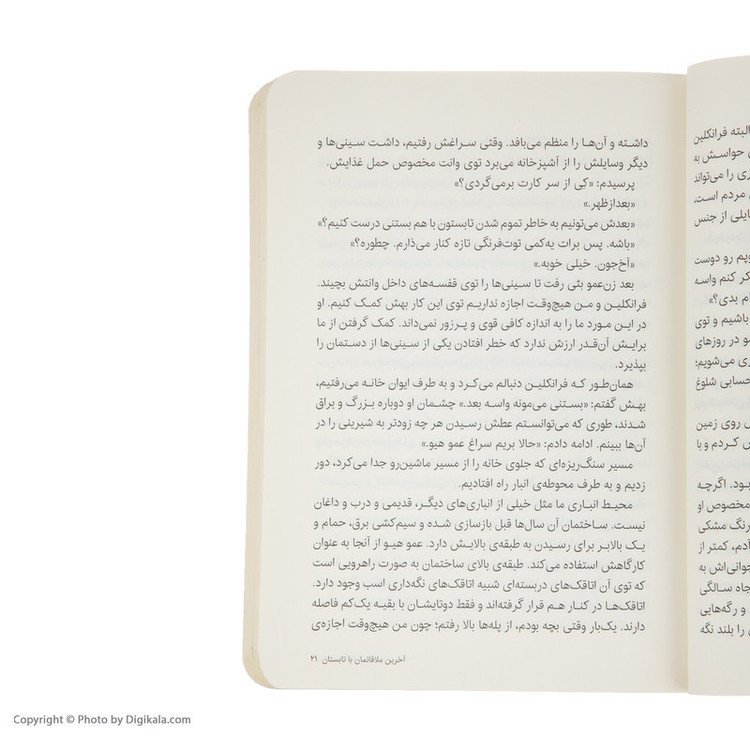 داشته و آن‌ها را منظم می‌بافد. وقتی سراغش رفتیم، داشت سینی‌ها و
دیگر وسایلش را از آشپزخانه می‌برد توی وانت مخصوص حمل غذایش.
پرسیدم: «کِی از سر کارت برمی‌گردی؟»
«بعدازظهر.»
«بعدش می‌تونیم به خاطر تموم شدن تابستون با هم بستنی درست کنیم؟»
«باشه. پس برات یه‌کمی توت‌فرنگی تازه کنار می‌ذارم. چطوره؟»
«آخ‌جون. خیلی خوبه.»
بعد زن‌عمو بثی رفت تا سینی‌ها را توی قفسه‌های داخل وانتش بچیند.
فرانکلین و من هیچ‌وقت اجازه نداریم توی این کار بهش کمک کنیم. او
در این مورد ما را به اندازه کافی قوی و پرزور نمی‌داند. کمک گرفتن از ما
برایش آن‌قدر ارزش ندارد که خطر افتادن یکی از سینی‌ها از دستمان را
بپذیرد.
همان‌طور که فرانکلین دنبالم می‌کرد و به طرف ایوان خانه می‌رفتیم،
بهش گفتم: «بستنی می‌مونه واسه بعد.» چشمان او دوباره بزرگ و براق
شدند، طوری که می‌توانستم عطش رسیدن هر چه زودتر به شیرینی را در
آن‌ها ببینم. ادامه دادم: «حالا بریم سراغ عمو هیو.»
مسیر سنگ‌ریزه‌ای که جلوی خانه را از مسیر ماشین‌رو جدا می‌کرد، دور
زدیم و به طرف محوطه‌ی انبار راه افتادیم.
محیط انباری ما مثل خیلی از انباری‌های دیگر، قدیمی و درب و داغان
نیست. ساختمان آن سال‌ها قبل بازسازی شده و سیم‌کشی برق، حمام و
یک بالابر برای رسیدن به طبقه‌ی بالایش دارد. عمو هیو از آنجا به عنوان
کارگاهش استفاده می‌کند. طبقه‌ی بالای ساختمان به صورت راهرویی است
که توی آن اتاقک‌های دربسته‌ای شبیه اتاقک‌های نگه‌داری اسب وجود دارد.
اتاقک‌ها در کنار هم قرار گرفته‌اند و فقط دوتایشان با بقیه یک‌کم فاصله
دارند. یک‌بار وقتی بچه بودم، از پله‌ها بالا رفتم؛ چون من هیچ‌وقت اجازه‌ی
آخرین ملاقاتمان با تابستان ۲۱
البته فرانکلین
حواسش به
ری را می‌تواند
مردم است.
ایلی از جنس
ویم رو دوست
کر کنم واسه
ام بدی؟»
باشیم و توی
و در روزهای
ری می‌شویم؛
حسابی شلوغ
روی زمین
کردم و با
بود. اگرچه
مخصوص او
رنگ مشکی
آدم، کمتر از
جوانی‌اش به
جاه سالگی
و رگه‌هایی
را بلند نگه
Copyright © Photo by Digikala.com